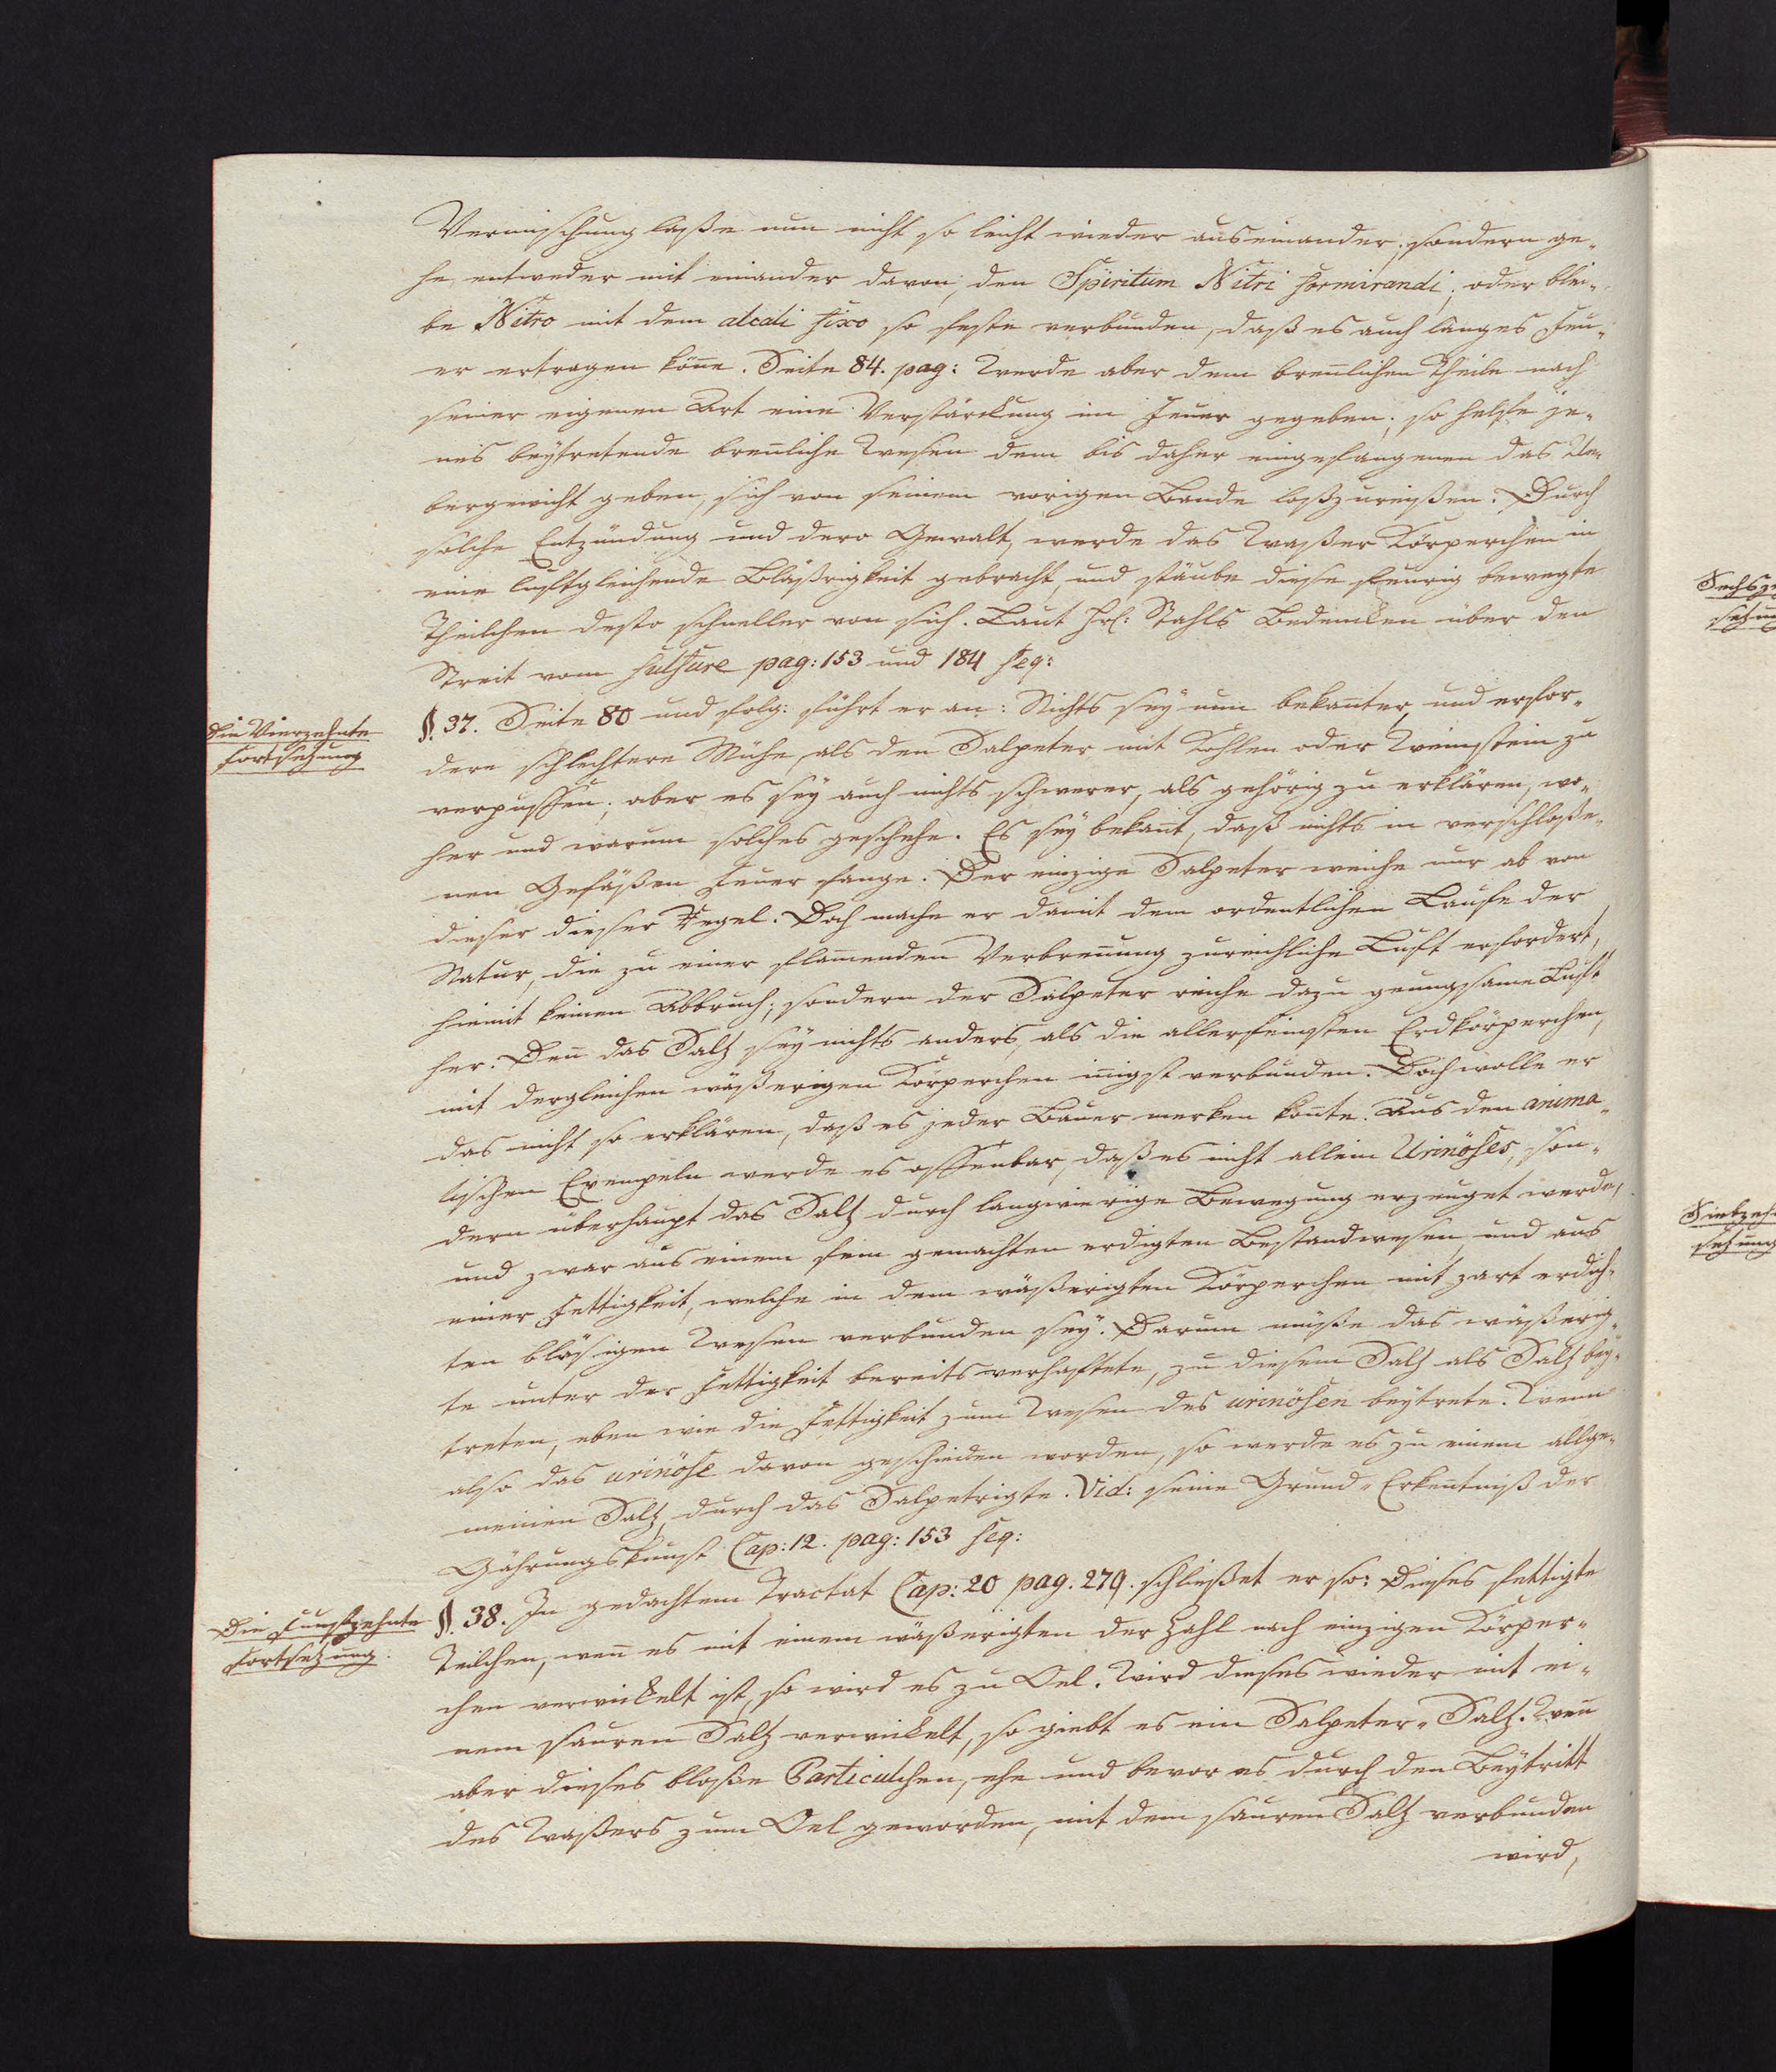 Vermischung laße nun nicht so leicht wieder auseinander, sondern ge-
he entweder mit einander davon, den Spiritum Nitri formirandi; oder blei-
be Nitro mit dem alcali fixo so feste verbunden, daß es auch langes Feu-
er ertragen köñe. Seite 84. pag: Werde aber dem breñlichen Theile nach
seiner eigenen Art eine Verstärckung im Feuer gegeben; so helfe je-
nes beÿtretende breñliche Wesen dem bis daher eingefangenen das Ue-
bergewicht geben, sich von seinem vorigen Bande loßzureißen. Durch
solche Entzündung und dero Gewalt, werde das Waßer Körperchen in
eine luftgleichende Bläßrigkeit gebracht, und stäube diese feurig bewegte
Theilchen desto schneller von sich. Laut Hr: Stahls Bedencken über den
Streit vom Sulfure pag: 153 und 184 seq:
Die Vierzehnte
Fortsetzung
§. 37. Seite 80 und folg: führt er an: Nichts seÿ nun bekañter, und erfor-
dere schlechtere Mühe, als den Salpeter mit Kohlen oder Weinstein zu
verpuffen; aber es seÿ auch nichts schwerer, als gehörig zu erklären, wo-
her und warum solches geschehe. Es seÿ bekañt, daß nichts in verschloße-
nen Gefäßen Feuer fange. Der einzige Salpeter weiche nur ab von
dieser dieser Regel. Doch mache er damit dem ordentlichen Laufe der
Natur, die zu einer flam̃enden Verbreñung zureichliche Luft erfordert,
hiemit keinen Abbruch; sondern der Salpeter reiche dazu genungsame Luft
her. Deñ das Saltz seÿ nichts anders, als die allerfeinsten Erdkörperchen,
mit dergleichen wäßerigen Körperchen iñigst verbunden. Doch wolle er
das nicht so erklären, daß es jeder Bauer merken köñte. Aus den anima-
lischen Exempeln werde es offenbar, daß es nicht allein Urinöses, son-
dern überhaupt das Saltz durch langwierige Bewegung erzeuget werde,
und zwar aus einem fein gemachten erdigten Bestandwesen, und aus
einer Fettigkeit, welche in dem wäßerigten Körperchen mit zart erdich-
ten bläsigen Wesen verbunden seÿ. Darum müße das wäßerig-
te unter der Fettigkeit bereits verhaftete, zu diesem Saltz als Saltz beÿ-
treten, eben wie die Fettigkeit zum Wesen des urinösen beÿtrete. Wenn
also das urinöse davon geschieden worden, so werde es zu einem allge-
meinen Saltz, durch das Salpetrigte. Vid: seine Grund-Erkeñtniß der
Gährungskunst Cap: 12. pag: 153 seq:
Die Funfzehnte
Fortsetzung.
§. 38. In gedachtem Tractat Cap: 20 pag. 279. schließet er so: Dieses fettigte
Teilchen, weñ es mit einem wäßerigten der Zahl nach einzigen Körper-
chen verwickelt ist, so wird es zu Oel. Wird dieses wieder mit ei-
nem sauren Saltz verwickelt, so giebt es ein Salpeter-Saltz. Weñ
aber dieses bloße Particulchen, ehe und bevor es durch den Beÿtritt
des Waßers zum Oel geworden, mit dem sauren Saltz verbunden
wird,